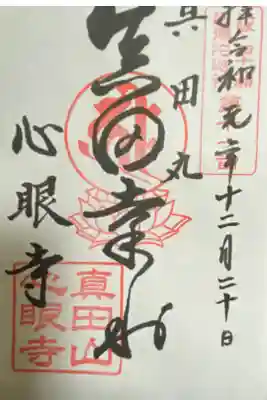 拝令和元年十二月二十日
真田丸
真田幸村
心眼寺
真田山
心眼寺